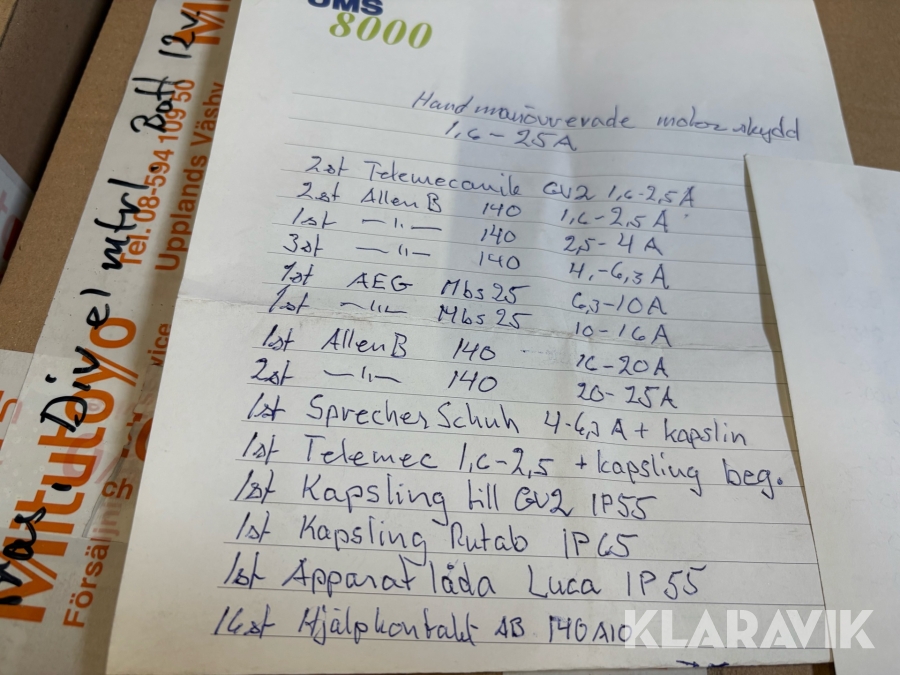 OMS
8000
Handmanövrerade motorskydd
1,6-25A
2st Telemecanile GV2 1,6-2,5A
2st Allen B 140 1,6-2,5A
1st -"- 140 2,5-4A
3st -"- 140 4,-6,3A
1st AEG Mbs25 6,3-10A
1st -"- Mbs25 10-16A
1st Allen B 140 16-20A
2st -"- 140 20-25A
1st Sprecher Schuh 4-6,3A + kapslin
1st Telemec 1,6-2,5 + kapsling beg.
1st Kapsling till GV2 IP55
1st Kapsling Rutab IP65
1st Apparatlåda Luca IP55
16st Hjälpkontakt AB 140A10
Div elmtrl. Batt 12v
Mitutoyo
Tel. 08-594 109 50
Upplands Väsby
KLARAVIK